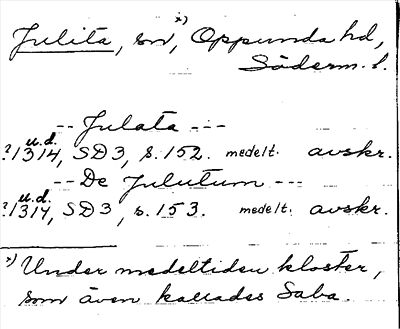 x)
Julita, sn, Oppunda hd,
Söderm. l.
-- Julata ---
u.d.
?1314, SD3, s. 152. medelt. avskr.
-- De Julutum ---
u.d.
?1314, SD3, s. 153. medelt. avskr.
x) Under medeltiden kloster,
som även kallades Saba.